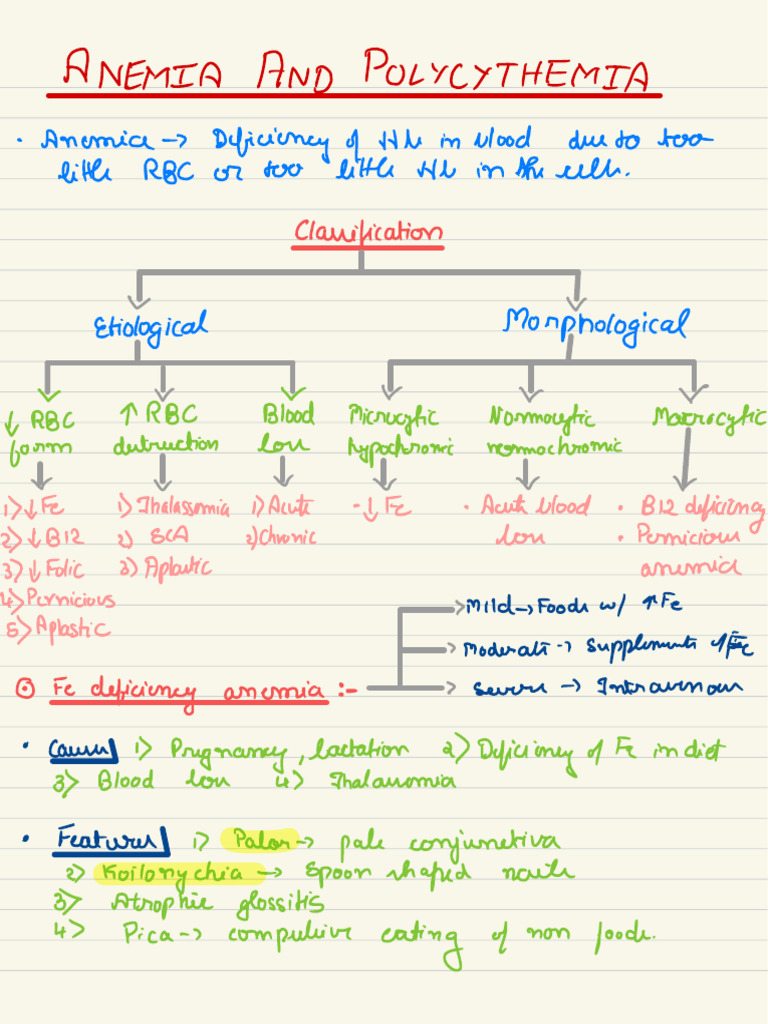 ANEMIA AND POLYCYTHEMIA
• Anemia → Deficiency of Hb in blood due to too
little RBC or too little Hb in the cells.
Classification
Etiological Morphological
↓ RBC form ↑ RBC destruction Blood loss Microcytic hypochronic Normocytic normochromic Macrocytic
1) ↓ Fe
2) ↓ B12
3) ↓ Folic
4) Pernicious
5) Aplastic
1) Thalassomia
2) SCA
3) Aplastic
1) Acute
2) Chronic
- ↓ Fe
• Acute blood
loss
• B12 deficiency
• Pernicious
anemia
Mild → Foods w/ ↑ Fe
Moderate → Supplements of Fe
Severe → Intravenous
⊙ Fe deficiency anemia :-
• Causes 1) Pregnancy, lactation 2) Deficiency of Fe in diet
3) Blood loss 4) Thalassomia
• Features 1) Palor → pale conjunctiva
2) Koilonychia → Spoon shaped nails
3) Atrophic glossitis
4) Pica → compulsive eating of non foods.